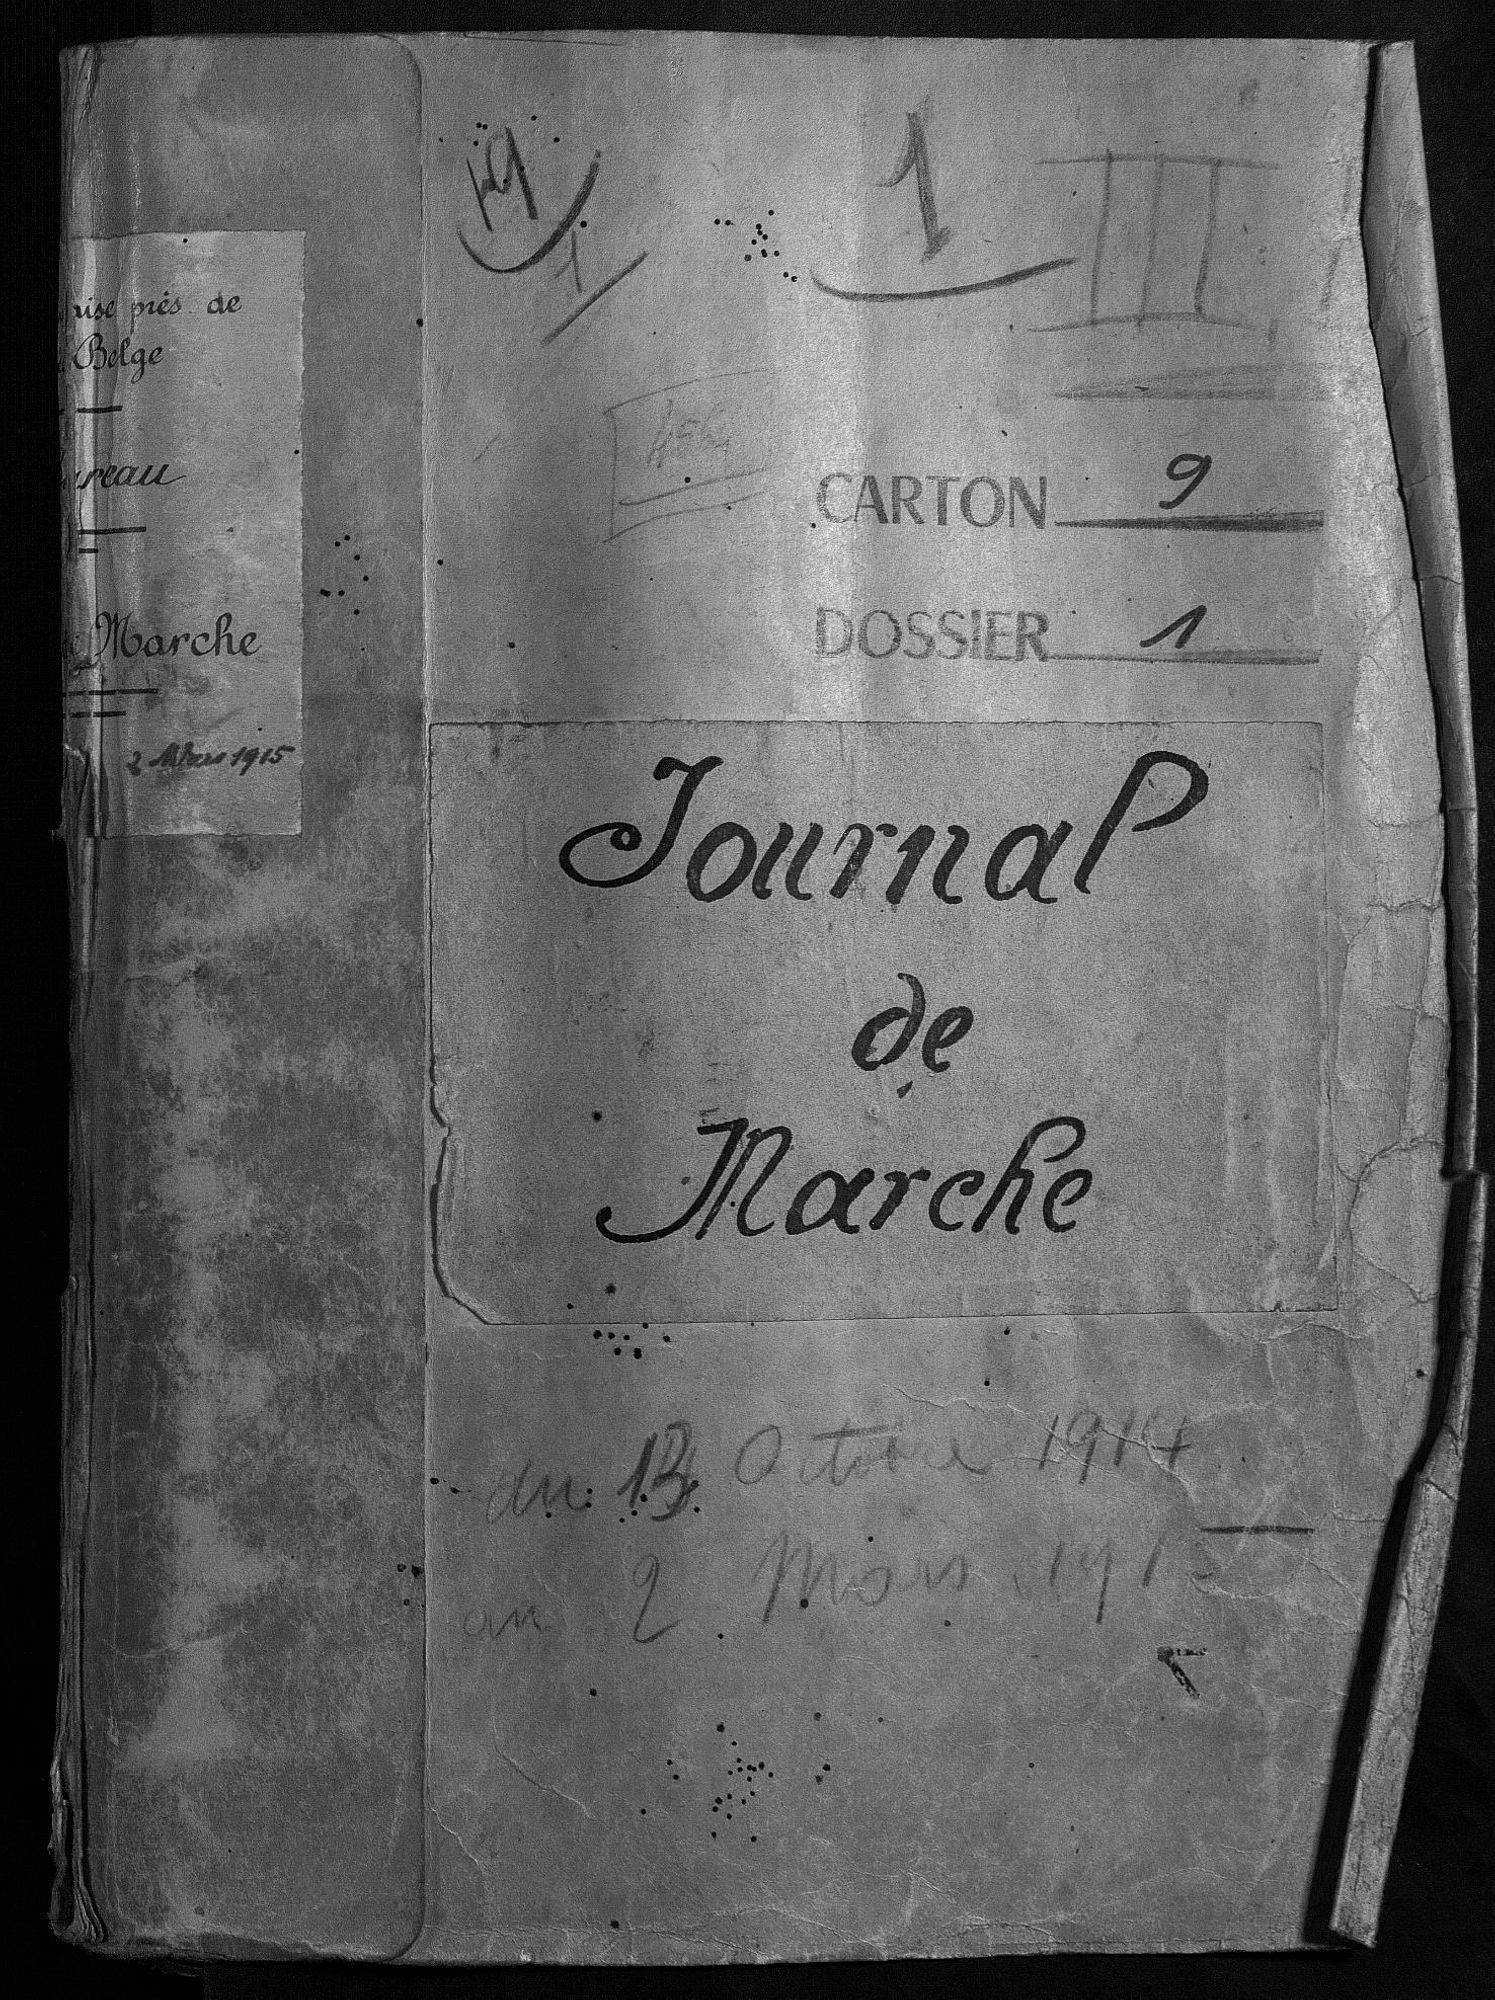 aise près de
Belge
ureau
Marche
2 Mars 1915
19
1
1
III
CARTON 9
DOSSIER 1
Journal
de
Marche
du 13 Octobre 1914
au 2 Mars 191